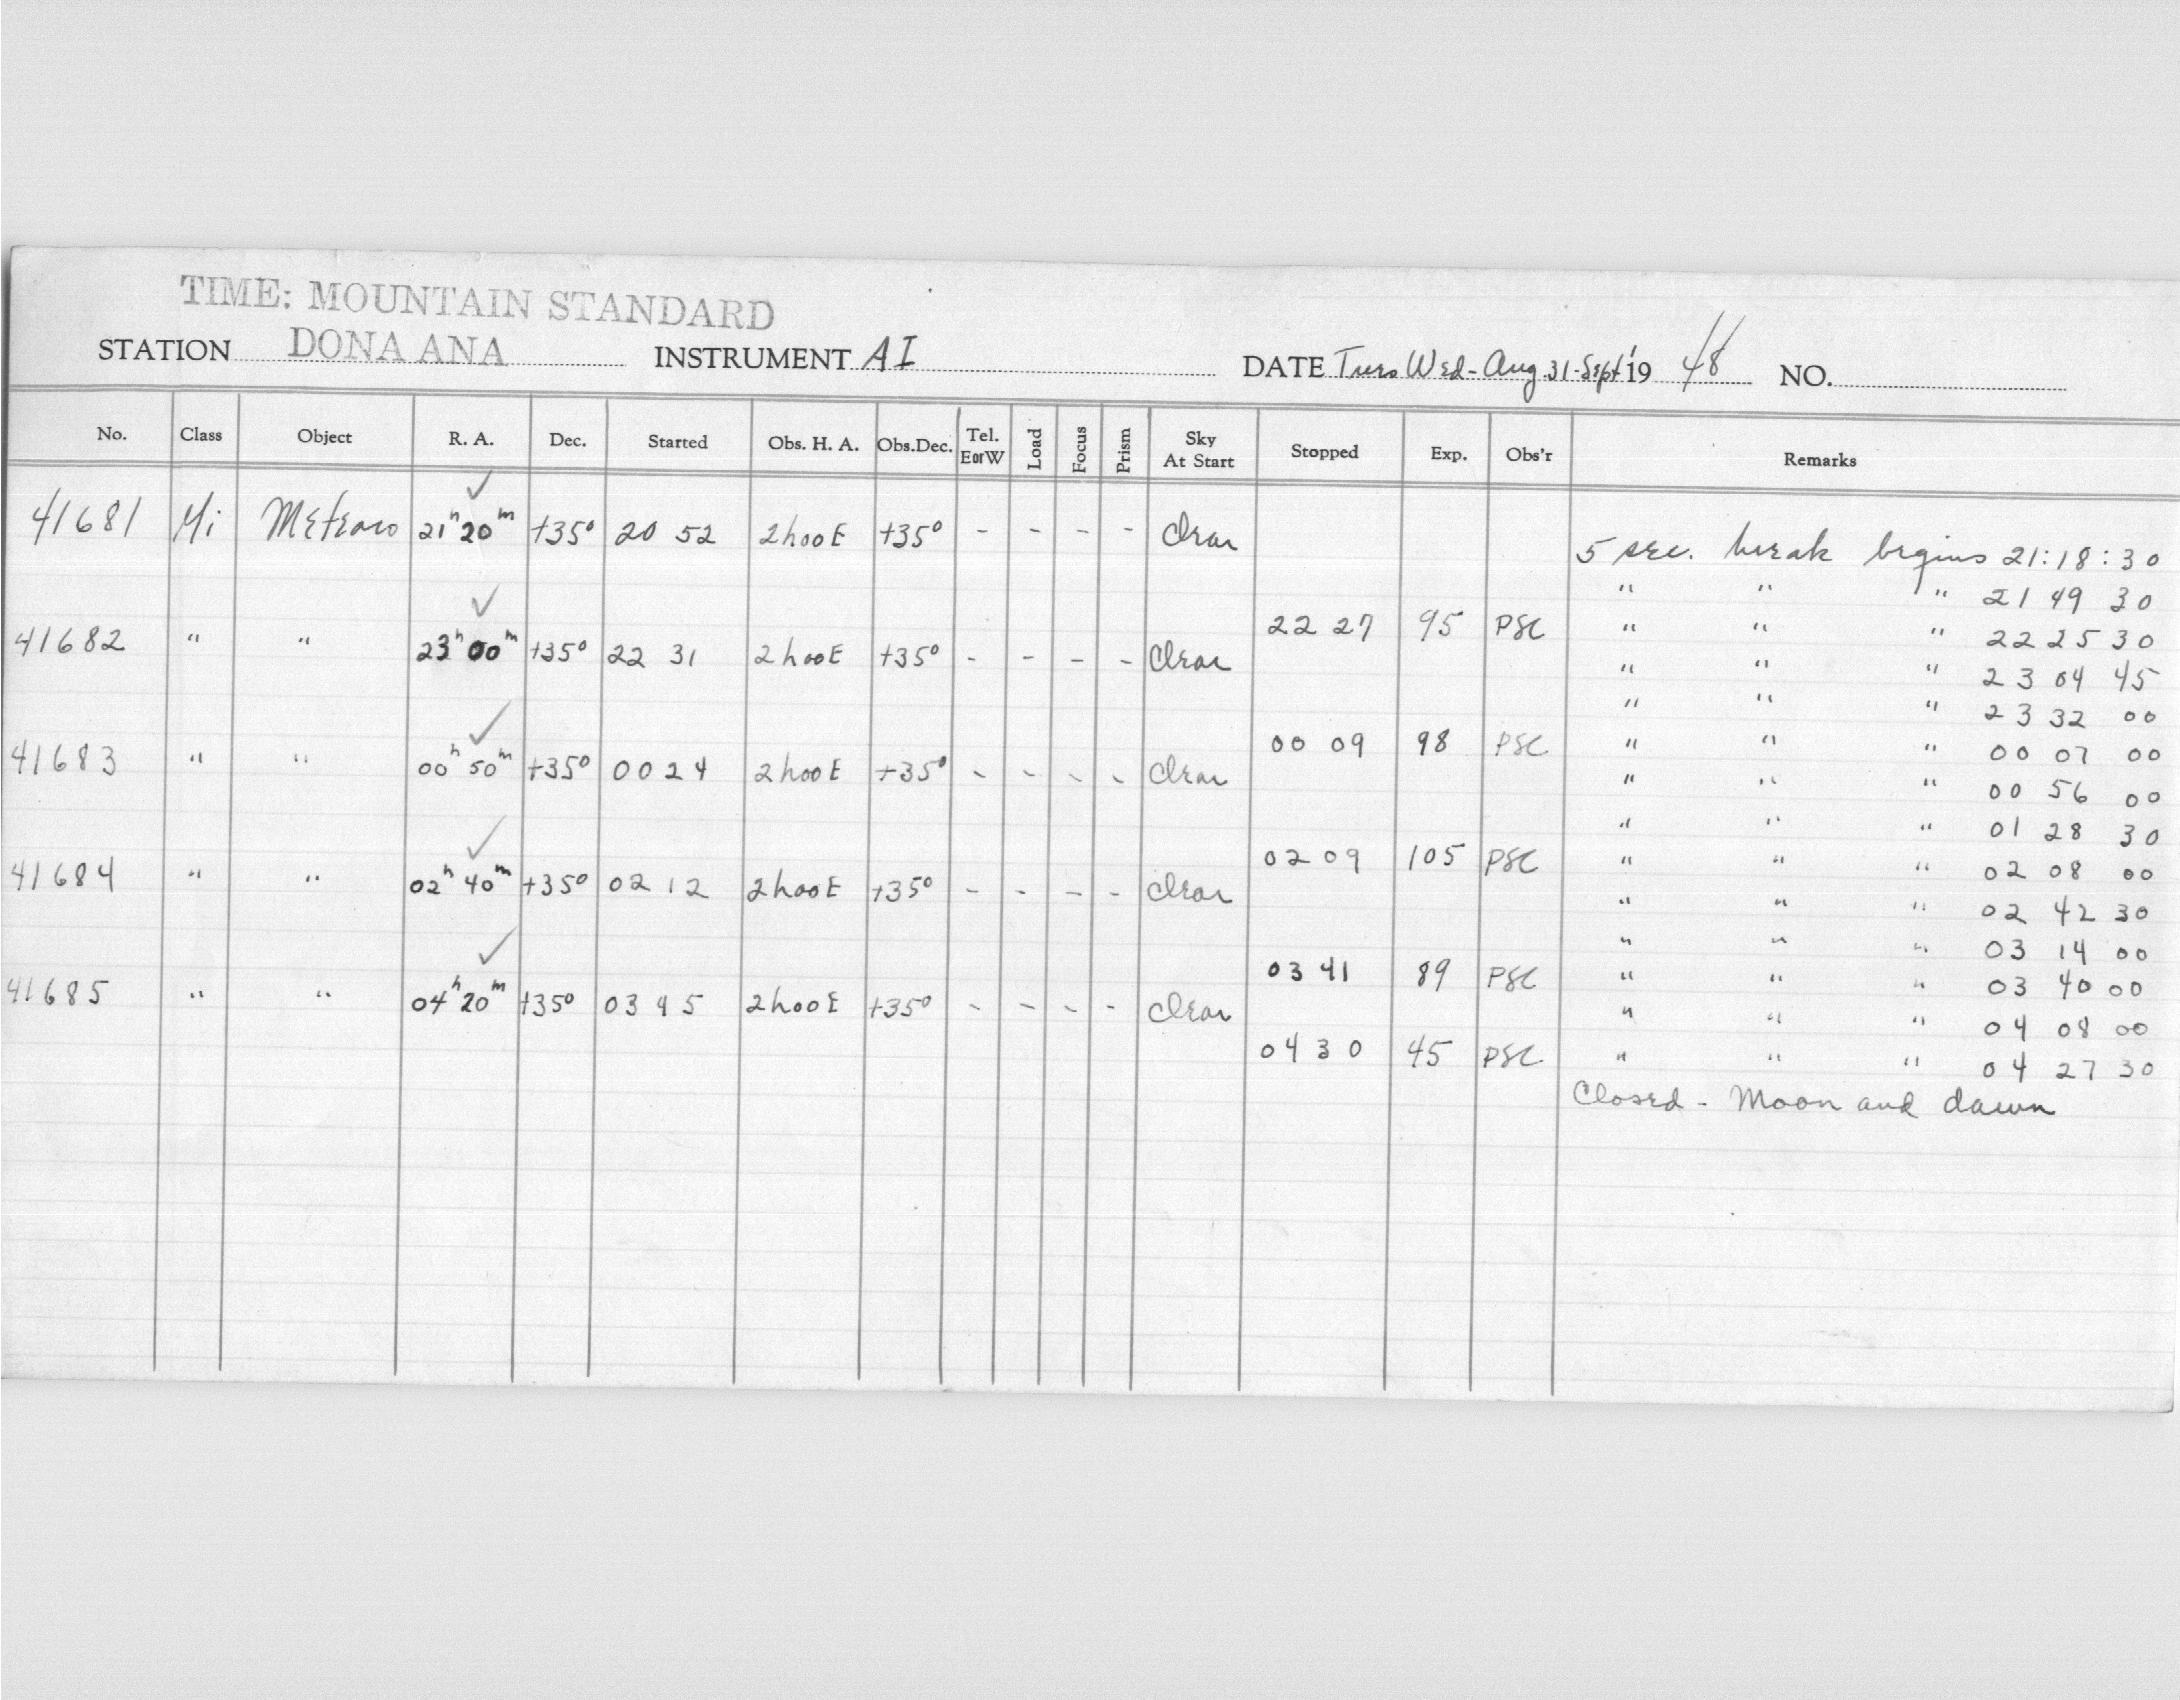 TIME: MOUNTAIN STANDARD
STATION DONA ANA INSTRUMENT AI DATE Tues Wed - Aug 31 - Sept 1 19 48 NO.
No. Class Object R. A. Dec. Started Obs. H. A. Obs. Dec. Tel. E or W Load Focus Prism Sky At Start Stopped Exp. Obs'r Remarks
41681 Mi Meteors 21h 20m +35° 20 52 2h00E +35° - - - - Clear
5 sec. break begins 21:18:30
" " " 21 49 30
22 27 95 PSC " " " 22 25 30
41682 " " 23h 00m +35° 22 31 2h00E +35° - - - - Clear " " " 23 04 45
" " " 23 32 00
00 09 98 PSC " " " 00 07 00
41683 " " 00h 50m +35° 00 24 2h00E +35° - - - - Clear " " " 00 56 00
" " " 01 28 30
02 09 105 PSC " " " 02 08 00
41684 " " 02h 40m +35° 02 12 2h00E +35° - - - - Clear " " " 02 42 30
" " " 03 14 00
03 41 89 PSC " " " 03 40 00
41685 " " 04h 20m +35° 03 45 2h00E +35° - - - - Clear " " " 04 08 00
04 30 45 PSC " " " 04 27 30
Closed - Moon and dawn